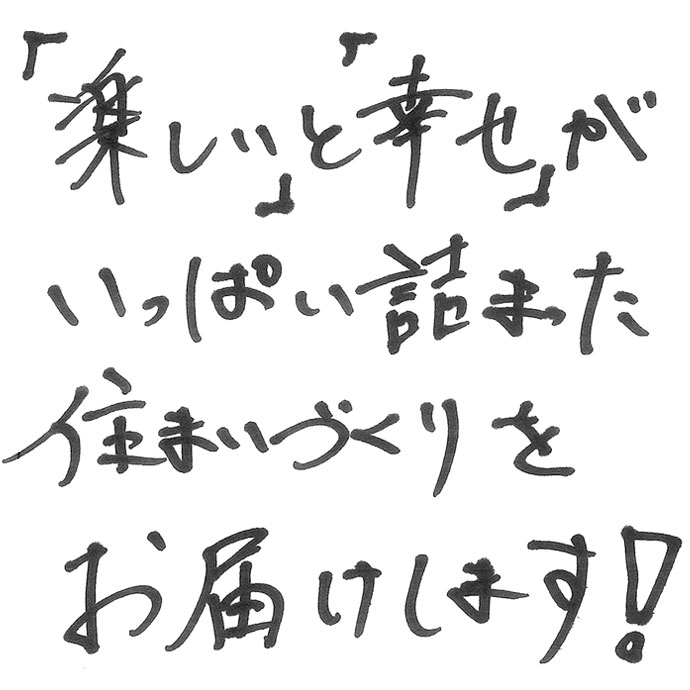 「楽しい」と「幸せ」が
いっぱい詰まった
住まいづくりを
お届けします！